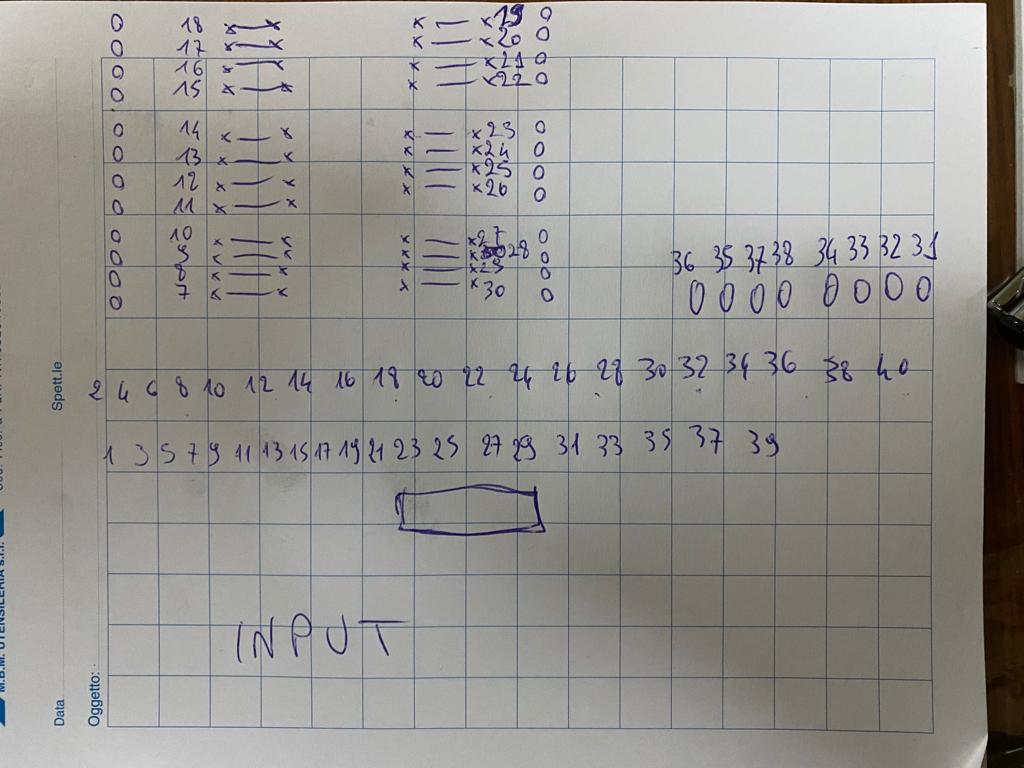 0 18 x — x x — x 19 0
0 17 x — x x — x 20 0
0 16 x — x x — x 21 0
0 15 x — x x — x 22 0
0 14 x — x x — x 23 0
0 13 x — x x — x 24 0
0 12 x — x x — x 25 0
0 11 x — x x — x 26 0
0 10 x — x x — x 27 0
0 9 x — x x — x 28 0
0 8 x — x x — x 29 0
0 7 x — x x — x 30 0
36 35 37 38 34 33 32 31
0 0 0 0 0 0 0 0
2 4 6 8 10 12 14 16 18 20 22 24 26 28 30 32 34 36 38 40
1 3 5 7 9 11 13 15 17 19 21 23 25 27 29 31 33 35 37 39
INPUT
M.B.M. UTENSILERIA s.r.l.
Data
Spett.le
Oggetto: